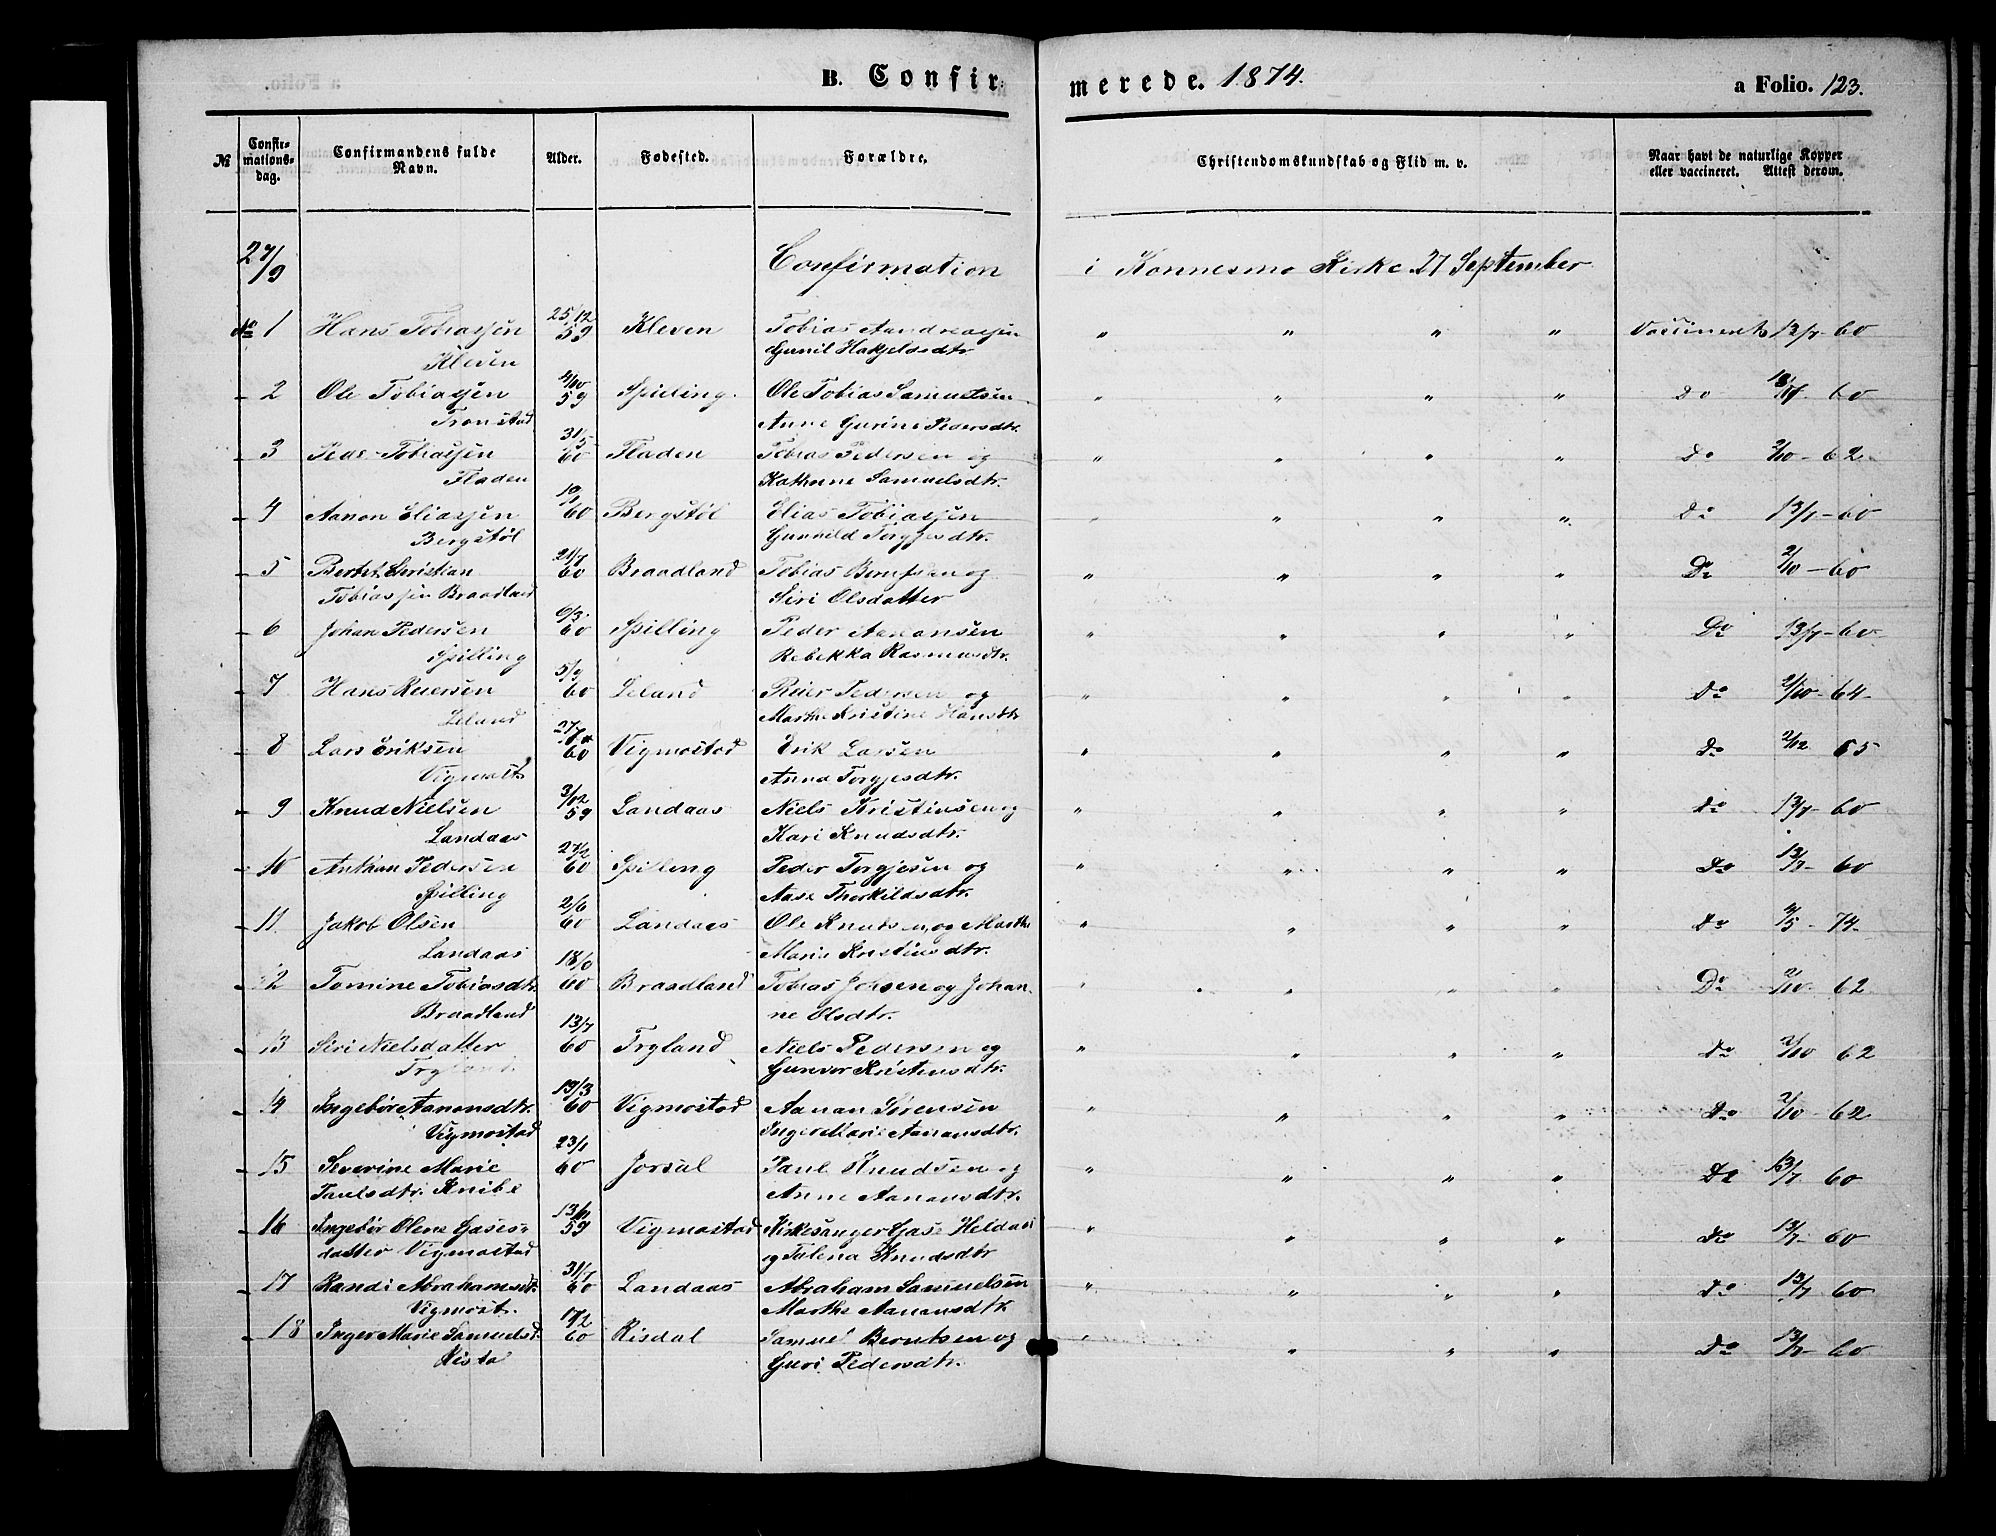 B. Confirmerede. 1874. a Folio. 123.
№ Confirmationsdag. Confirmandens fulde Navn. Alder. Fødested. Forældre. Christendomskundskab og Flid m. v. Naar havt de naturlige Kopper eller vaccineret. Attest derom.
27/9 Confirmation i Konnesmo Kirke 27 September
№ 1 Hans Tobiasjen 25/12 59 Kleven Tobias Aandreasjen " " " " 13/7 60
Kleven Gunil
2 Ole Tobiasjen 4/10 59 Spilling. Ole Tobias Samuelsen " " " " Do 60
Tronstad Anne Gurine Pedersdtr.
3 Peder Tobiasjen 31/5 60 Fladen Tobias Pedersen og " " " " Do 2/10 - 62
Fladen Kathrine Samuelsdtr.
4 Aanon Eliasjen 60 Bergstøl Elias Tobiasjen " " " " Do 13/7 - 60
Bergstøl Gunnild Torgjesdtr.
5 Christian 21/7 60 Braadland Tobias og " " " " Do 2/10 - 60
Tobiasjen Braadland Siri Olsdatter
6 Johan Pedersen 6/3 60 Spilling Peder Aanonsen " " " " Do 13/7 - 60
Spilling Rebekka Rasmusdtr.
7 Hans Reiersen 60 Leland Reier Pedersen og " " " " Do 2/10 - 64
Leland Marthe Kristine Hansdtr
8 Lars Eriksen 60 Vigmostad Erik Larsen " " " " Do 2/12 65
Vigmost. Anna Torgjesdtr.
9 Knud Nielsen 3/12 59 Landaas Niels Kristensen og " " " " Do 13/7 - 60
Landaas Kari Knudsdtr.
10 Pedersen 27/2 60 Spilling Peder Torgjesen og " " " " Do 13/7 - 60
Spilling Aase Thorkildsdtr.
11 Jakob Olsen 2/6 60 Landaas Ole Knutsen og Marthe " " " " Do - 74
Landaas Marie Kristensdtr.
12 Tomine Tobiasdtr. 60 Braadland Tobias Johsen og Johan- " " " " Do 2/10. 62
Braadland ne Elsdtr.
13 Siri Nielsdatter 13/7 60 Trgland Niels Pedersen og " " " " Do 2/10 62
Trgland. Gunvor Kristensdtr.
14 Ingebor Aanonsdtr. 19/3 60 Vigmostad Aanan Sørensen " " " " Do 2/10 - 62
Vigmostad Inger Marie Aanansdtr.
15 Severine Marie 23/1 60 Jorsal Paul Knudsen og " " " " Do 13/7 60
Paulsdtr. Knibe Anne Aanansdtr.
16 Ingebor Olene 59 Vigmostad Kirkesanger " " " " Do 13/7 60
datter Vigmostad og Talena Knudsdtr
17 Randi Abrahamsdtr 31/7 60 Landaas Abraham Samuelsen " " " " Do 13/7 60
Vigmost. Marthe Aanansdtr
18 Inger Marie Samuelsd. 60 Risdal Samuel Berntsen og " " " " Do 13/7 - 60
Guri Pedersdtr.